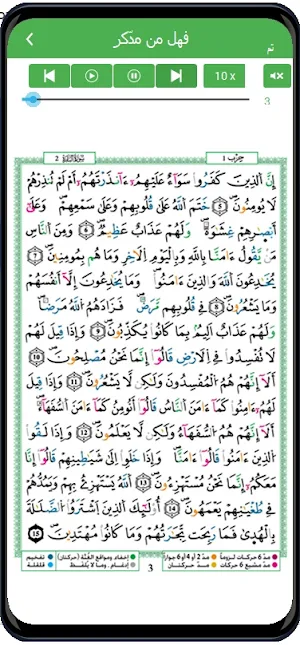 فهل من مدكر
10 x
3
حِزْب 1
سُورَةُ البَقَرَة 2
إِنَّ ٱلذِينَ كَفَرُواْ سَوَآءٌ عَلَيْهِمُۥٓ ءَآنذَرْتَهُمُۥٓ أَمْ لَمْ تُنذِرْهُمْ
لَا يُومِنُونَ 5 خَتَمَ ٱللَّهُ عَلَىٰ قُلُوبِهِمْ وَعَلَىٰ سَمْعِهِمْ وَعَلَىٰٓ
أَبْصٰ۪رِهِمْ غِشَٰوَةٌ وَلَهُمْ عَذَابٌ عَظِيمٌ 6 وَمِنَ ٱلنَّاسِ
مَنْ يَّقُولُ ءَامَنَّا بِاللَّهِ وَبِالْيَوْمِ ٱلَاخِرِ وَمَا هُم بِمُومِنِينَ 7
يُخَٰدِعُونَ ٱللَّهَ وَالذِينَ ءَامَنُواْ وَمَا يُخَٰدِعُونَ إِلَّآ أَنفُسَهُمْ
وَمَا يَشْعُرُونَ 8 فِے قُلُوبِهِم مَّرَضٌ فَزَادَهُمُ ٱللَّهُ مَرَضاً
وَلَهُمْ عَذَابٌ أَلِيمٌ بِمَا كَانُواْ يُكَذِّبُونَ 9 وَإِذَا قِيلَ لَهُمْ
لَا تُفْسِدُواْ فِے ٱلَارْضِ قَالُوٓاْ إِنَّمَا نَحْنُ مُصْلِحُونَ 10
أَلَآ إِنَّهُمْ هُمُ ٱلْمُفْسِدُونَ وَلَٰكِن لَّا يَشْعُرُونَ 11 وَإِذَا قِيلَ
لَهُمُۥٓ ءَامِنُواْ كَمَآ ءَامَنَ ٱلنَّاسُ قَالُوٓاْ أَنُومِنُ كَمَآ ءَامَنَ ٱلسُّفَهَآءُ
أَلَآ إِنَّهُمْ هُمُ ٱلسُّفَهَآءُ وَلَٰكِن لَّا يَعْلَمُونَ 12 وَإِذَا لَقُواْ
ٱلذِينَ ءَامَنُواْ قَالُوٓاْ ءَامَنَّا وَإِذَا خَلَوِاْ اِلَىٰ شَيَٰطِينِهِمْ قَالُوٓاْ إِنَّا
مَعَكُمُۥٓ إِنَّمَا نَحْنُ مُسْتَهْزِءُونَ 13 ٱللَّهُ يَسْتَهْزِۓُ بِهِمْ وَيَمُدُّهُمْ
فِے طُغْيَٰنِهِمْ يَعْمَهُونَ 14 أُوْلَٰٓئِكَ ٱلذِينَ ٱشْتَرَوُاْ ٱلضَّلَٰلَةَ
بِالْهُدَىٰ فَمَا رَبِحَت تِّجَٰرَتُهُمْ وَمَا كَانُواْ مُهْتَدِينَ 15
مدّ 6 حركات لزوماً مدّ 2 أو 4 أو 6 جوازاً إخفاء، ومواقع الغُنّة (حركتان) تفخيم
مدّ مشبع 6 حركات مدّ حركتان إدغام، وما لا يُلفظ قلقلة
3